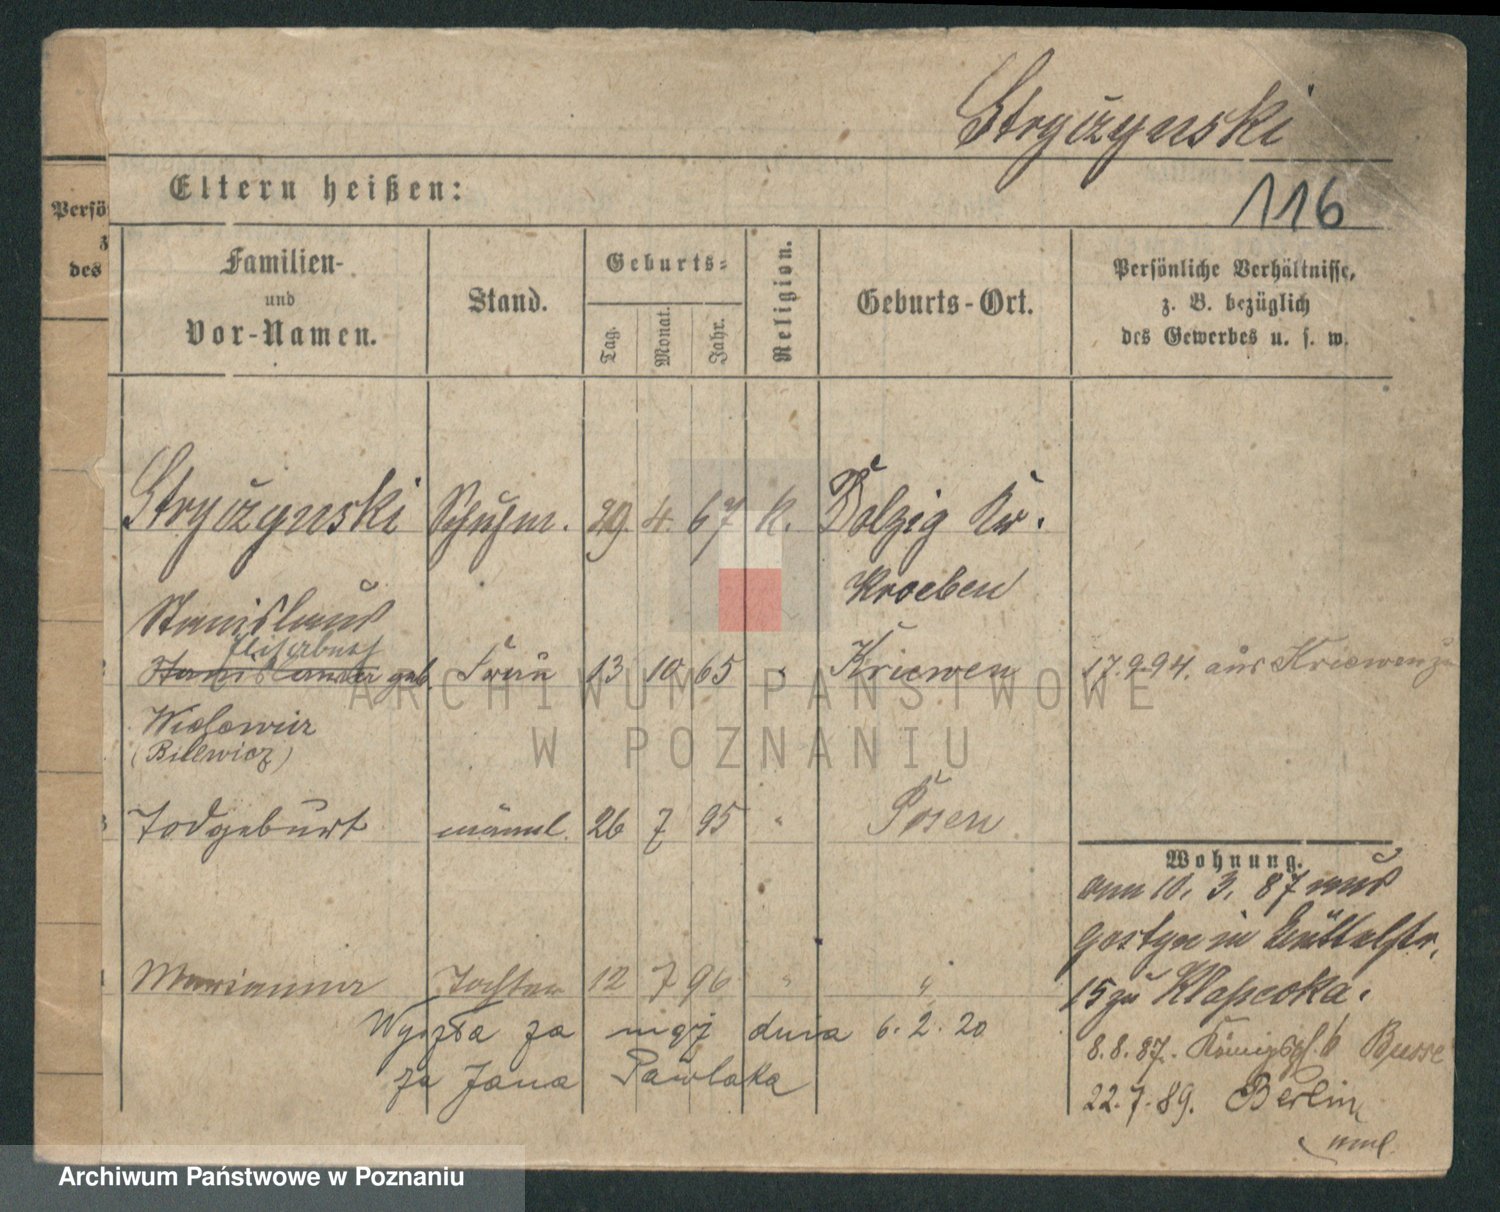 Stryczynski
116
Eltern heißen:
Persö
z
des
Familien-
und
Vor-Namen.
Stand.
Geburts-
Tag.
Monat.
Jahr.
Religion.
Geburts-Ort.
Persönliche Verhältnisse,
z. B. bezüglich
des Gewerbes u. s. w.
Stryczynski Schuhm. 29. 4. 67 k. Dolzig Kr.
Kroeben
Stanislaus
Elisabeth
2 geb. Frau 13 10 65 " Kriewen 17.9.94. aus Kriewen zu
(Bilewicz)
3 Todgeburt männl. 26 7 95 " Posen
Wohnung.
am 10. 3. 87 aus
Gostyn in
15 zu
4 Marianna Tochter 12 7 96 " "
Wyszła za mąż dnia 6. 2. 20
za Jana Pawlaka
8.8.87. Königspl. 6 Busse
22.7.89. Berlin
ARCHIWUM PAŃSTWOWE
W POZNANIU
Archiwum Państwowe w Poznaniu